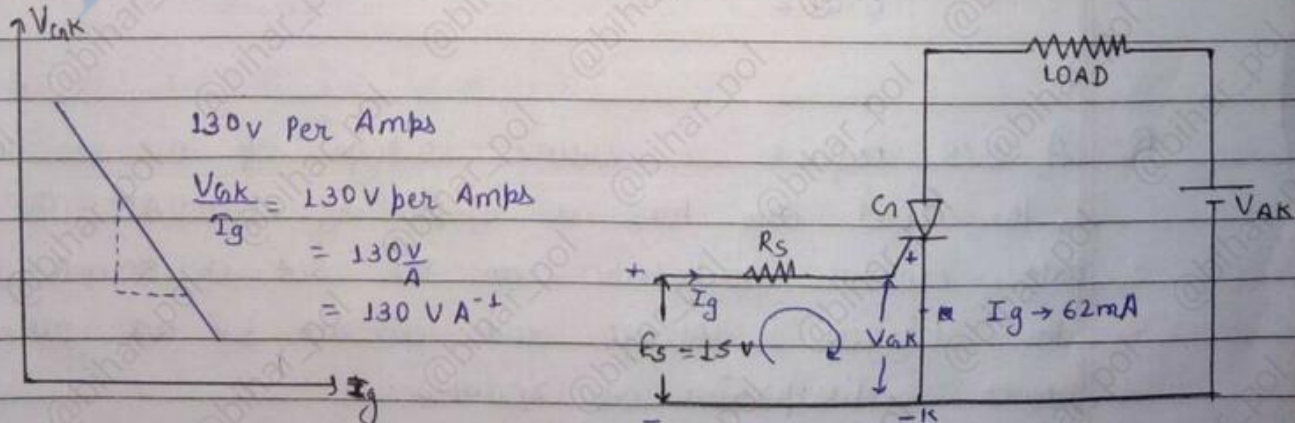 V_GK
130V Per Amps
V_GK / Ig = 130 V per Amps
= 130 V/A
= 130 V A⁻¹
Ig
LOAD
V_AK
G
R_S
+
+
Ig
Ig → 62mA
E_S = 15 V
V_GK
-
-K
@bihar_pol